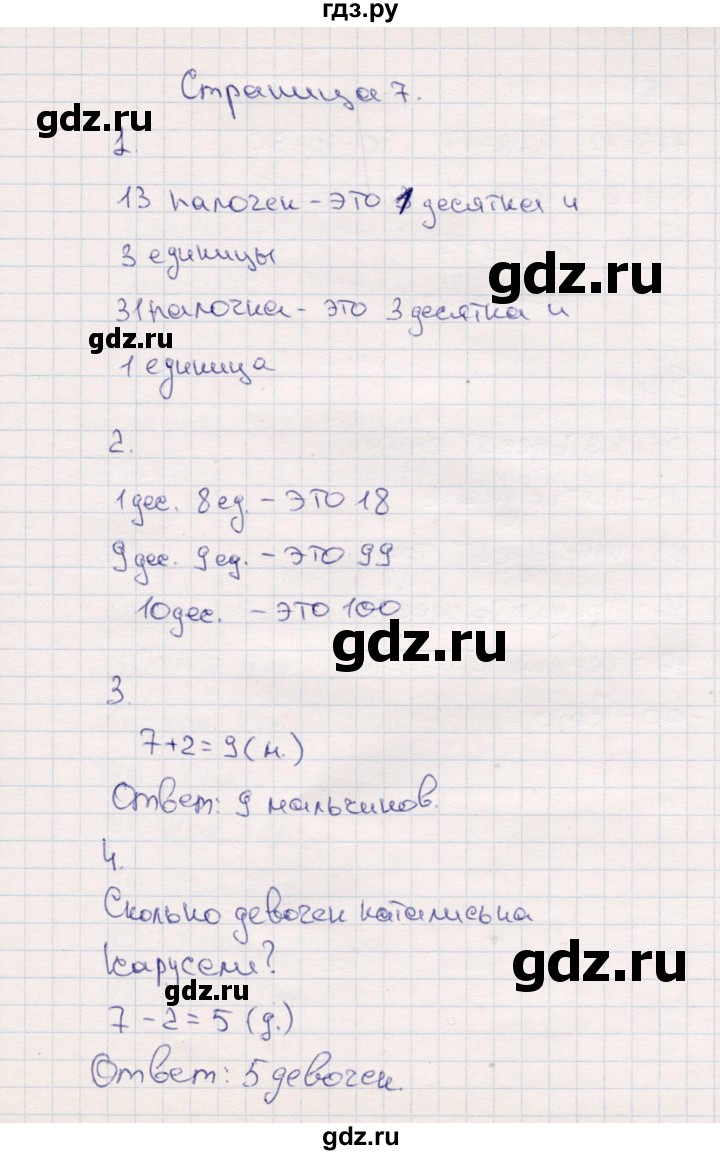 гдз.ру
Страница 7.
gdz.ru
1.
13 палочек - это 1 десятка и
3 единицы
gdz.ru
31 палочка - это 3 десятка и
gdz.ru
1 единица
2.
1 дес. 8 ед. - это 18
9 дес. 9 ед. - это 99
10 дес. - это 100
gdz.ru
3.
7+2=9(м.)
Ответ: 9 мальчиков.
4.
Сколько девочек катались на
карусели?
gdz.ru
gdz.ru
7-2=5 (д.)
Ответ: 5 девочек.
gdz.ru